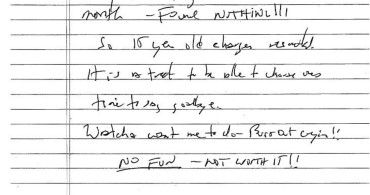 month - Found NOTHING!!!
So 15 year old charges
It is a treat to be able to choose ones
time to say goodbye.
want me to do Parrot again!!
NO FUN - NOT WORTH IT!!